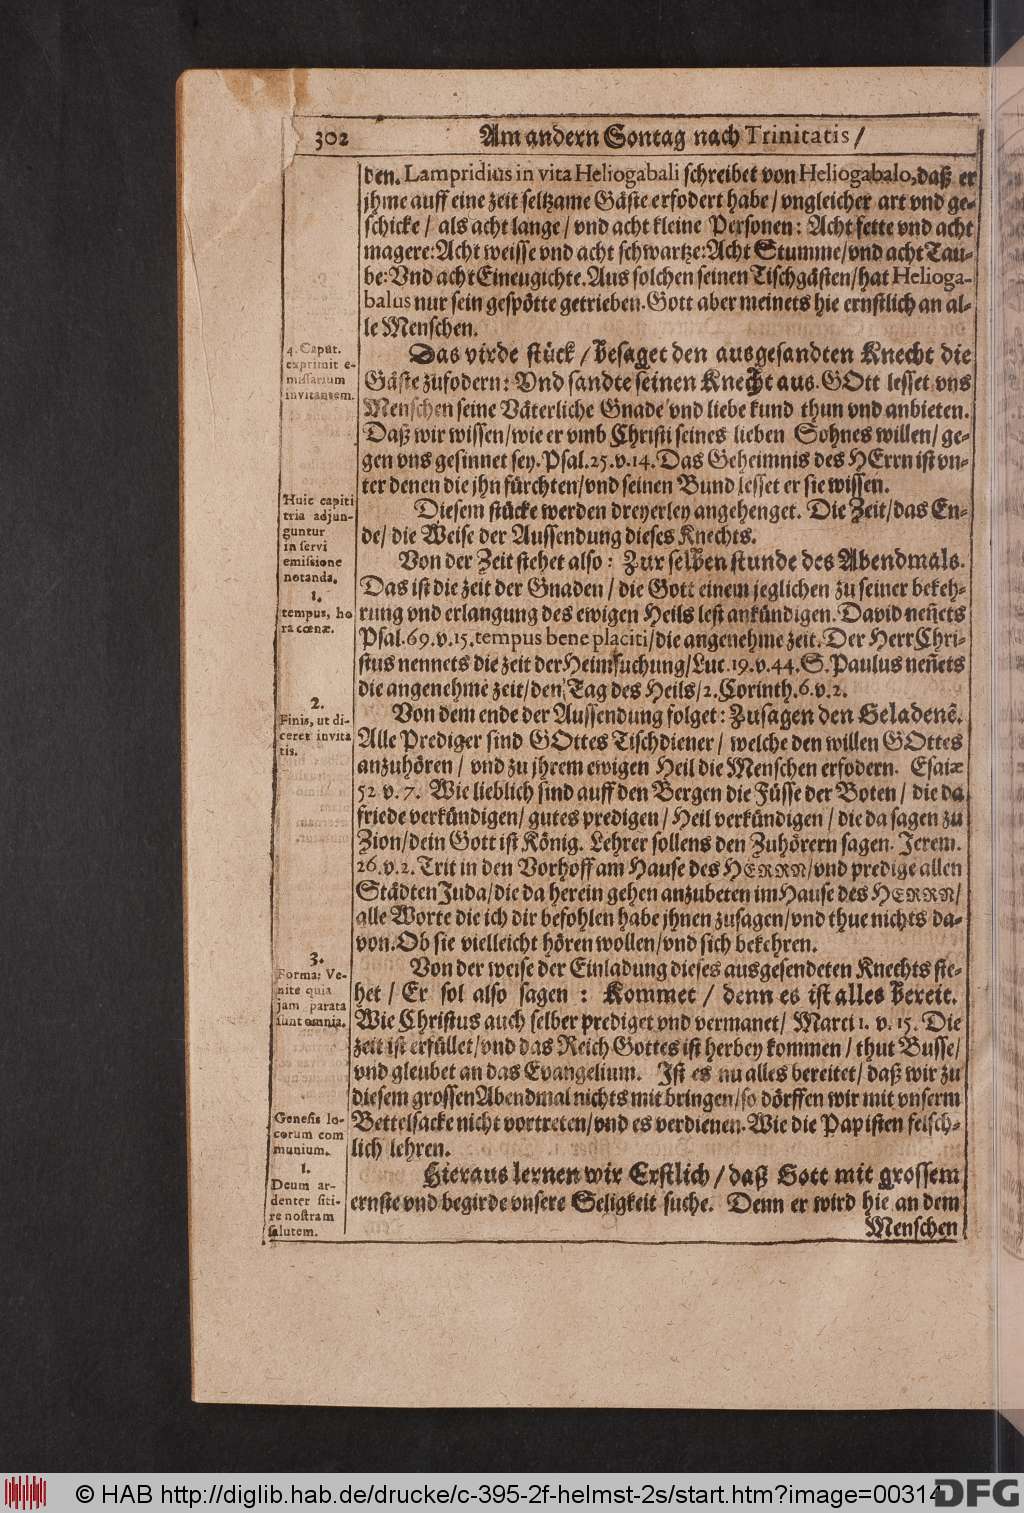 302 Am andern Sontag nach Trinitatis /
den. Lampridius in vita Heliogabali schreibet von Heliogabalo, daß er
jhme auff eine zeit seltzame Gäste erfodert habe / vngleicher art vnd ge-
schicke / als acht lange / vnd acht kleine Personen: Acht fette vnd acht
magere: Acht weisse vnd acht schwartze: Acht Stumme / vnd acht Tau-
be: Vnd acht Eineugichte. Aus solchen seinen Tischgästen / hat Helioga-
balus nur sein gespötte getrieben. Gott aber meinets hie ernstlich an al-
le Menschen.
4. Caput.
exprimit e-
missarium
invitantem.
Das virde stück / besaget den ausgesandten Knecht die
Gäste zufodern: Vnd sandte seinen Knecht aus. GOtt lesset vns
Menschen seine Väterliche Gnade vnd liebe kund thun vnd anbieten.
Daß wir wissen / wie er vmb Christi seines lieben Sohnes willen / ge-
gen vns gesinnet sey. Psal. 25. v. 14. Das Geheimnis des HErrn ist vn-
ter denen die jhn fürchten / vnd seinen Bund lesset er sie wissen.
Huic capiti
tria adjun-
guntur
in servi
emissione
notanda.
Diesem stücke werden dreyerley angehenget. Die Zeit / das En-
de / die Weise der Aussendung dieses Knechts.
1.
tempus, ho
ra cœnæ.
Von der Zeit stehet also: Zur selben stunde des Abendmals.
Das ist die zeit der Gnaden / die Gott einem jeglichen zu seiner bekeh-
rung vnd erlangung des ewigen Heils lest ankündigen. David neñets
Psal. 69. v. 15. tempus bene placiti / die angenehme zeit. Der Herr Chri-
stus nennets die zeit der Heimsuchung / Luc. 19. v. 44. S. Paulus neñets
die angenehme zeit / den Tag des Heils / 2. Corinth. 6. v. 2.
2.
Finis, ut di-
ceret invita
tis.
Von dem ende der Aussendung folget: Zusagen den Geladenē.
Alle Prediger sind GOttes Tischdiener / welche den willen GOttes
anzuhören / vnd zu jhrem ewigen Heil die Menschen erfodern. Esaiæ
52 v. 7. Wie lieblich sind auff den Bergen die Füsse der Boten / die da
friede verkündigen / gutes predigen / Heil verkündigen / die da sagen zu
Zion / dein Gott ist König. Lehrer sollens den Zuhörern sagen. Jerem.
26. v. 2. Trit in den Vorhoff am Hause des HERRN / vnd predige allen
Städten Juda / die da herein gehen anzubeten im Hause des HERRN /
alle Worte die ich dir befohlen habe jhnen zusagen / vnd thue nichts da-
von. Ob sie vielleicht hören wollen / vnd sich bekehren.
3.
Forma: Ve-
nite quia
jam parata
sunt omnia.
Von der weise der Einladung dieses ausgesendeten Knechts ste-
het / Er sol also sagen: Kommet / denn es ist alles bereit.
Wie Christus auch selber prediget vnd vermanet / Marci 1. v. 15. Die
zeit ist erfüllet / vnd das Reich Gottes ist herbey kommen / thut Busse /
vnd gleubet an das Evangelium. Ist es nu alles bereitet / daß wir zu
diesem grossen Abendmal nichts mit bringen / so dörffen wir mit vnserm
Bettelsacke nicht vortreten / vnd es verdienen. Wie die Papisten felsch-
lich lehren.
Genesis lo-
corum com
munium.
1.
Deum ar-
denter siti-
re nostram
salutem.
Hieraus lernen wir Erstlich / daß Gott mit grossem
ernste vnd begirde vnsere Seligkeit suche. Denn er wird hie an dem
Menschen
© HAB http://diglib.hab.de/drucke/c-395-2f-helmst-2s/start.htm?image=00314
DFG